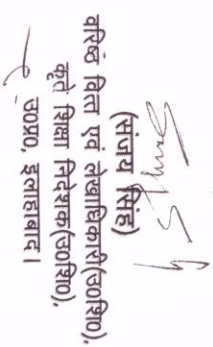 (संजय सिंह)
वरिष्ठ वित्त एवं लेखाधिकारी(उ०शि०),
कृते शिक्षा निदेशक(उ०शि०),
उ०प्र०, इलाहाबाद।